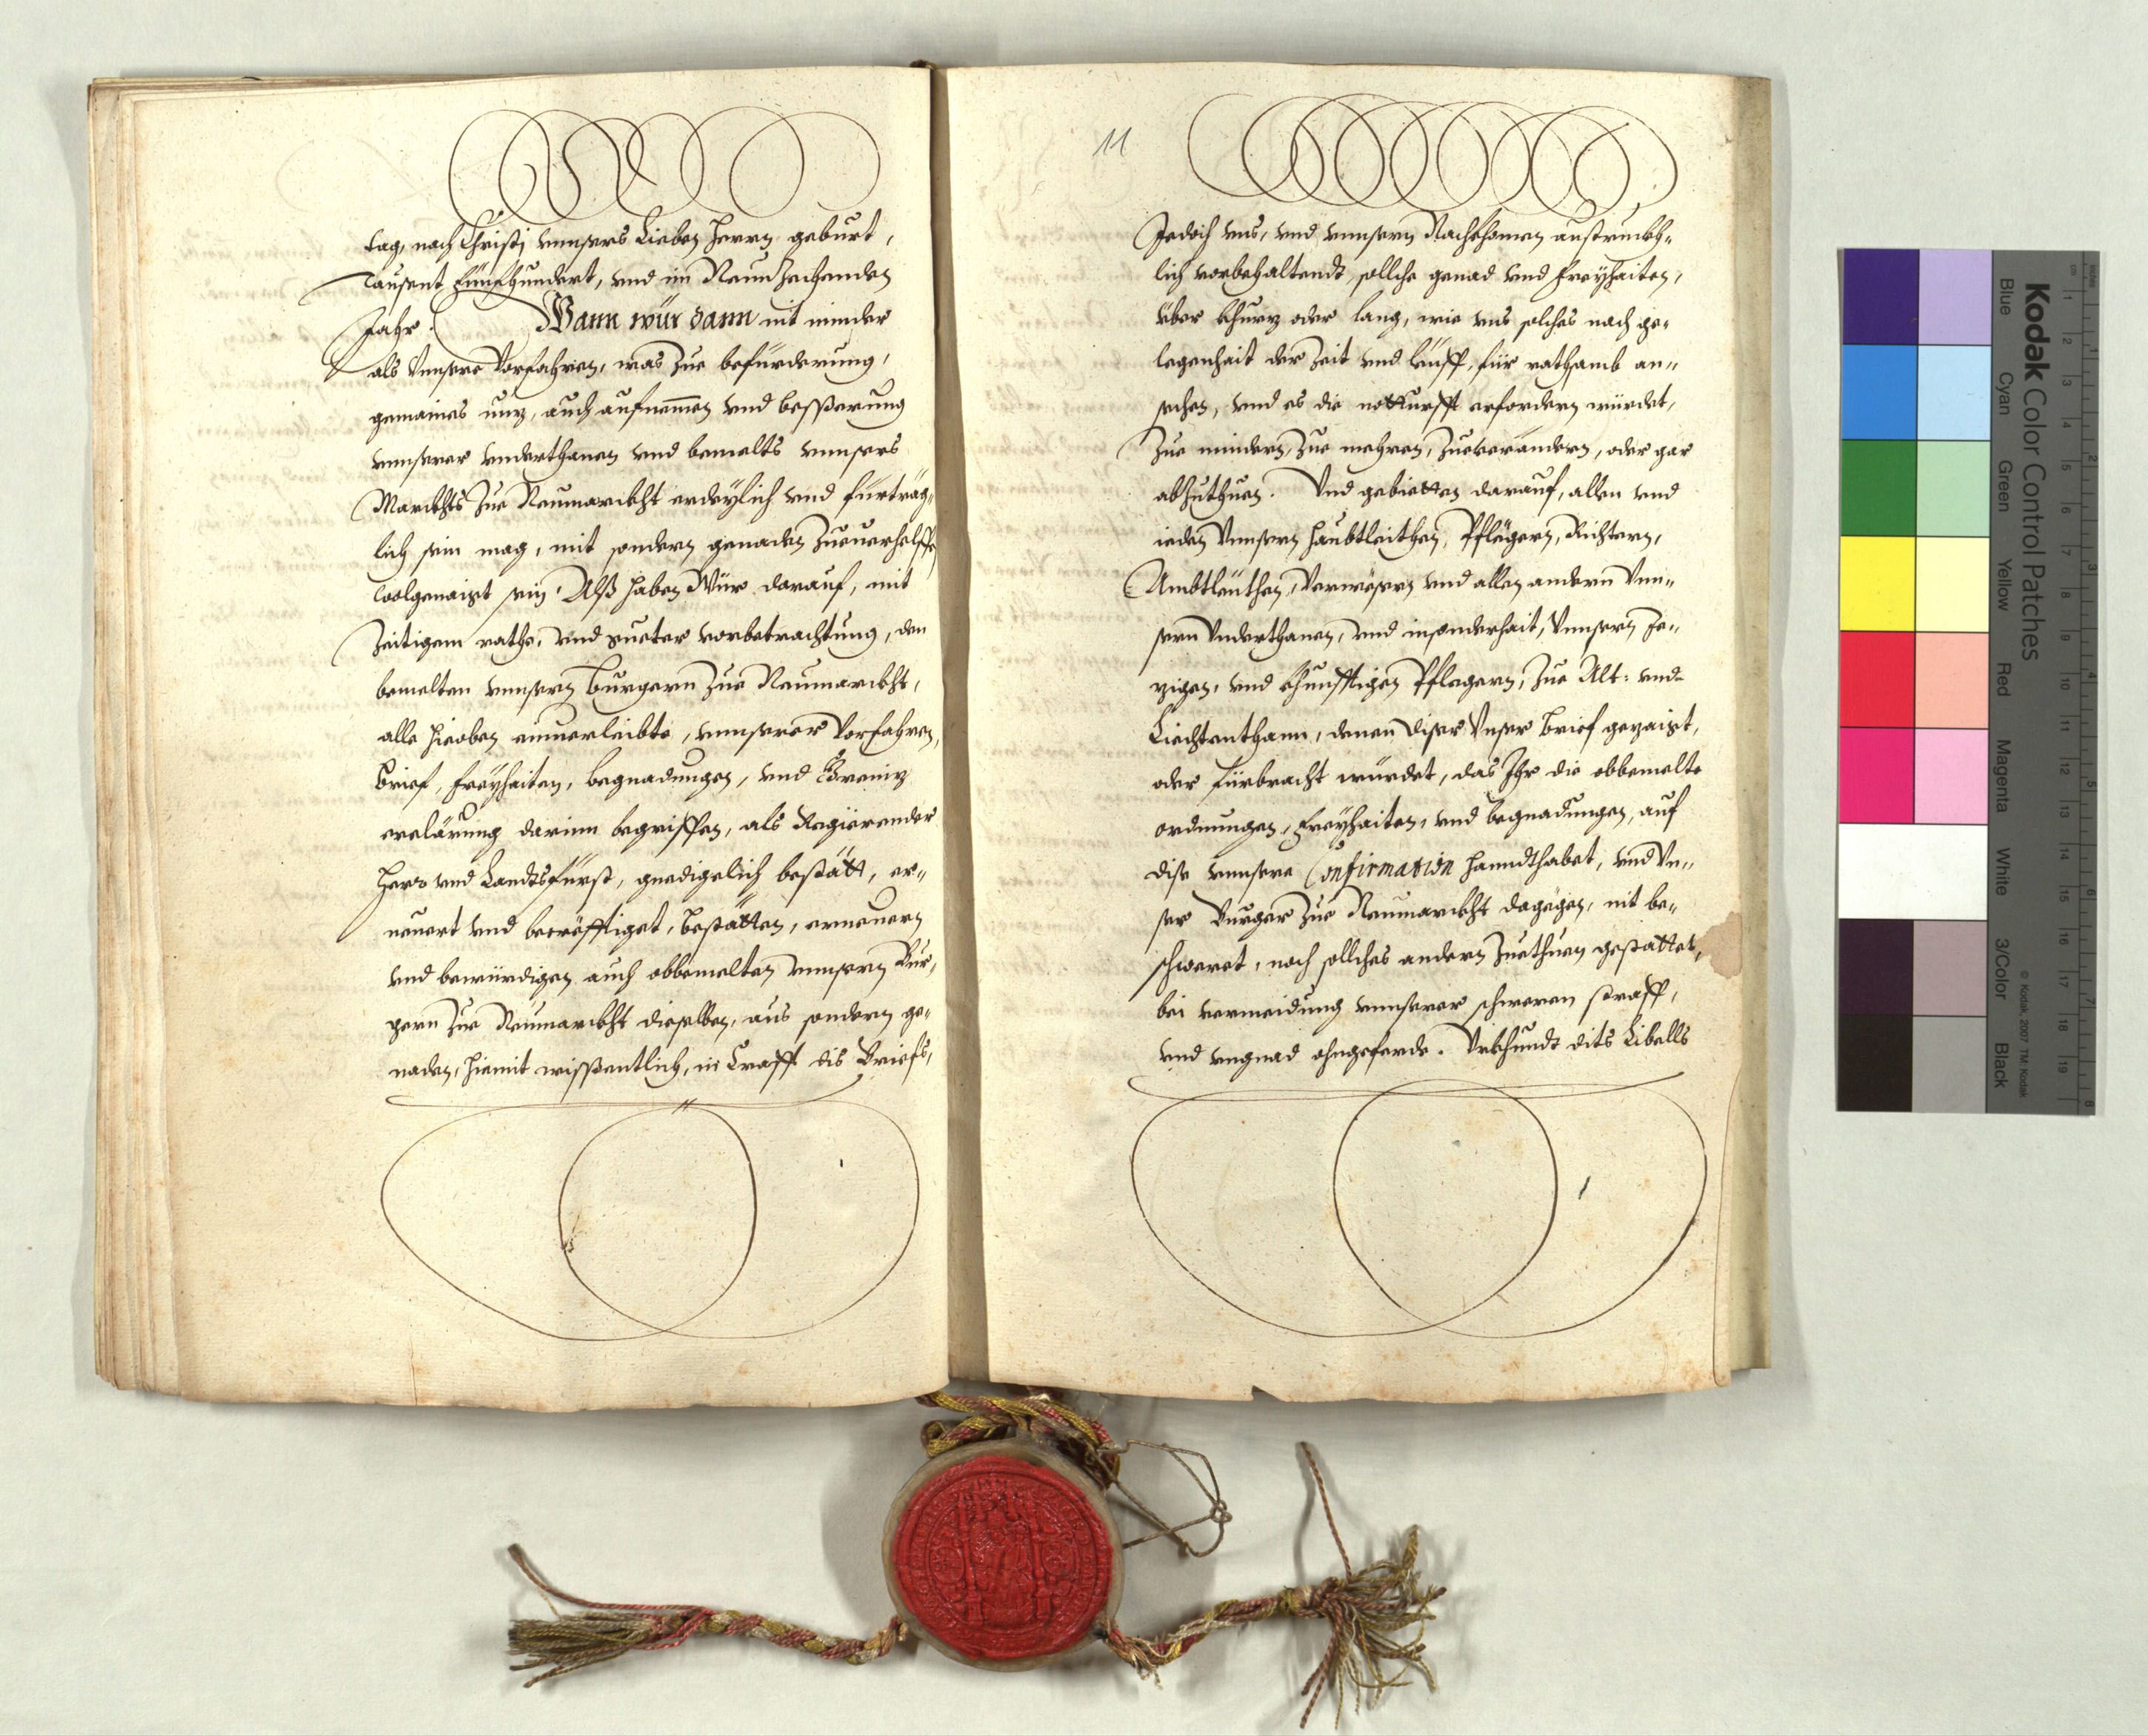 tag, nach Christj vnnsers Lieben Herrn geburt,
Tausent Fünfhundert, vnd im Neunzechenden
Jahr. Wann wür dann nit minder
als Vnnsere Vorfahren, was zue befürderung,
gemaines nuz, auch aufnemmen vnd besserung
vnnserer vnderthanen vnd bemelts vnnsers
Marckhts zue Neumarckht erdeÿlich vnd fürträg„
lich sein mag, mit sondern genaden zueuerhelffen
wolgenaigt sein, Alß haben Wür darauf, mit
Zeitigem rathe, vnd gueter vorbetrachtung, den
bemelten vnnsern Burgern zue Neumarckht,
alle hieoben einuerleibte, vnnserer Vorfahren,
Brief, Freÿhaiten, begnadungen, vnd Greniz
erclärung darinn begriffen, als Regierender
Herr vnd Landtsfürst, gnedigelich bestätt, er„
neuert vnd becrefftiget, bestätten, erneuern
vnd bewürdigen auch obbemelten vnnsern Bur„
gern zue Neumarckht dieselben, aus sondern ge„
naden, hiemit wissentlich, in Crafft dis Briefs,
11
Jedoch vns, vnd vnnsern Nachkhomen austruckh„
lich vorbehaltendt, sollche genad vnd Freÿhaiten,
über khurz oder lang, wie vns solches nach ge„
legenhait der Zeit vnd leüff, für rathsamb an„
sechen, vnd es die notturfft erfordern würdet,
Zue mindern, Zue mehren, Zueverändern, oder gar
abzuthuen. Vnd gebietten darauf, allen vnd
ieden Vnnsern Haubtleithen, Pflegern, Richtern,
Ambtleüthen, Verwesern vnd allen andern Vnn„
sern Vnderthanen, vnd insonderhait, Vnnsern Je„
zigen, vnd khünfftigen Pflegern, Zue Alt: vnd
Liechtenthann, denen diser Vnser Brief gezaigt,
oder fürbracht würdet, das Ihr die obbemelte
ordnungen, Freÿhaiten, vnd begnadungen, auf
dise vnnsere Confirmation Hanndthabet, vnd Vn„
ser Burger zue Neumarckht dagegen, nit be„
schweret, noch sollches andern Zuethuen gestattet,
bei vermeidung vnnserer schweren straff,
vnd vngnad ohngeferde. Vrkhundt dits Libells
Kodak Color Control Patches
Blue Cyan Green Yellow Red Magenta White 3/Color Black
© Kodak, 2007 TM Kodak